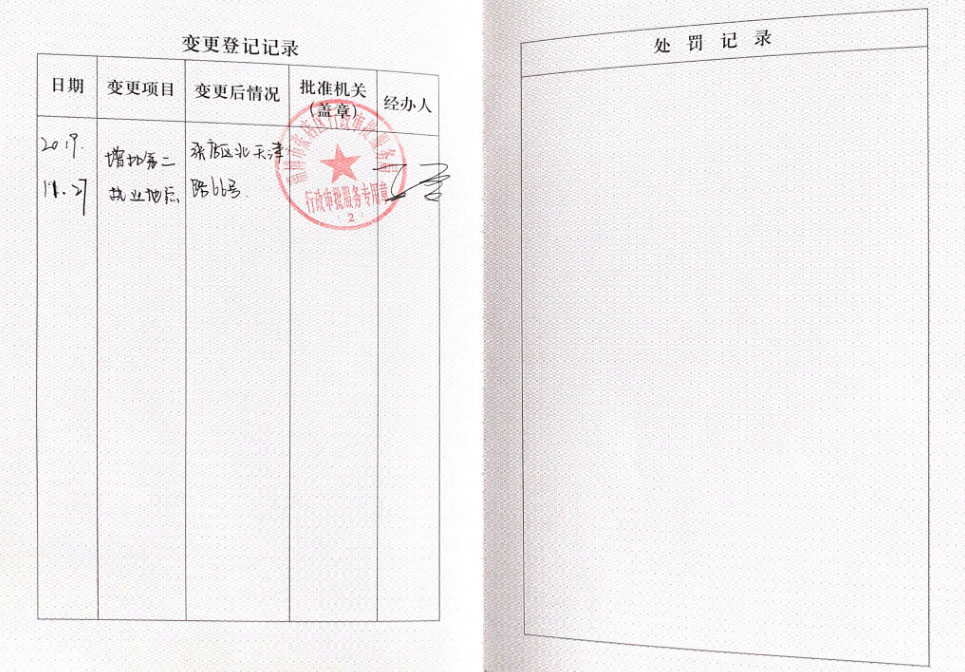 变更登记记录
日期
变更项目
变更后情况
批准机关
(盖章)
经办人
2019.
11.27
增加第二
执业地点
张店区北天津
路66号
淄博市张店区行政审批服务局
行政审批服务专用章
2
处罚记录